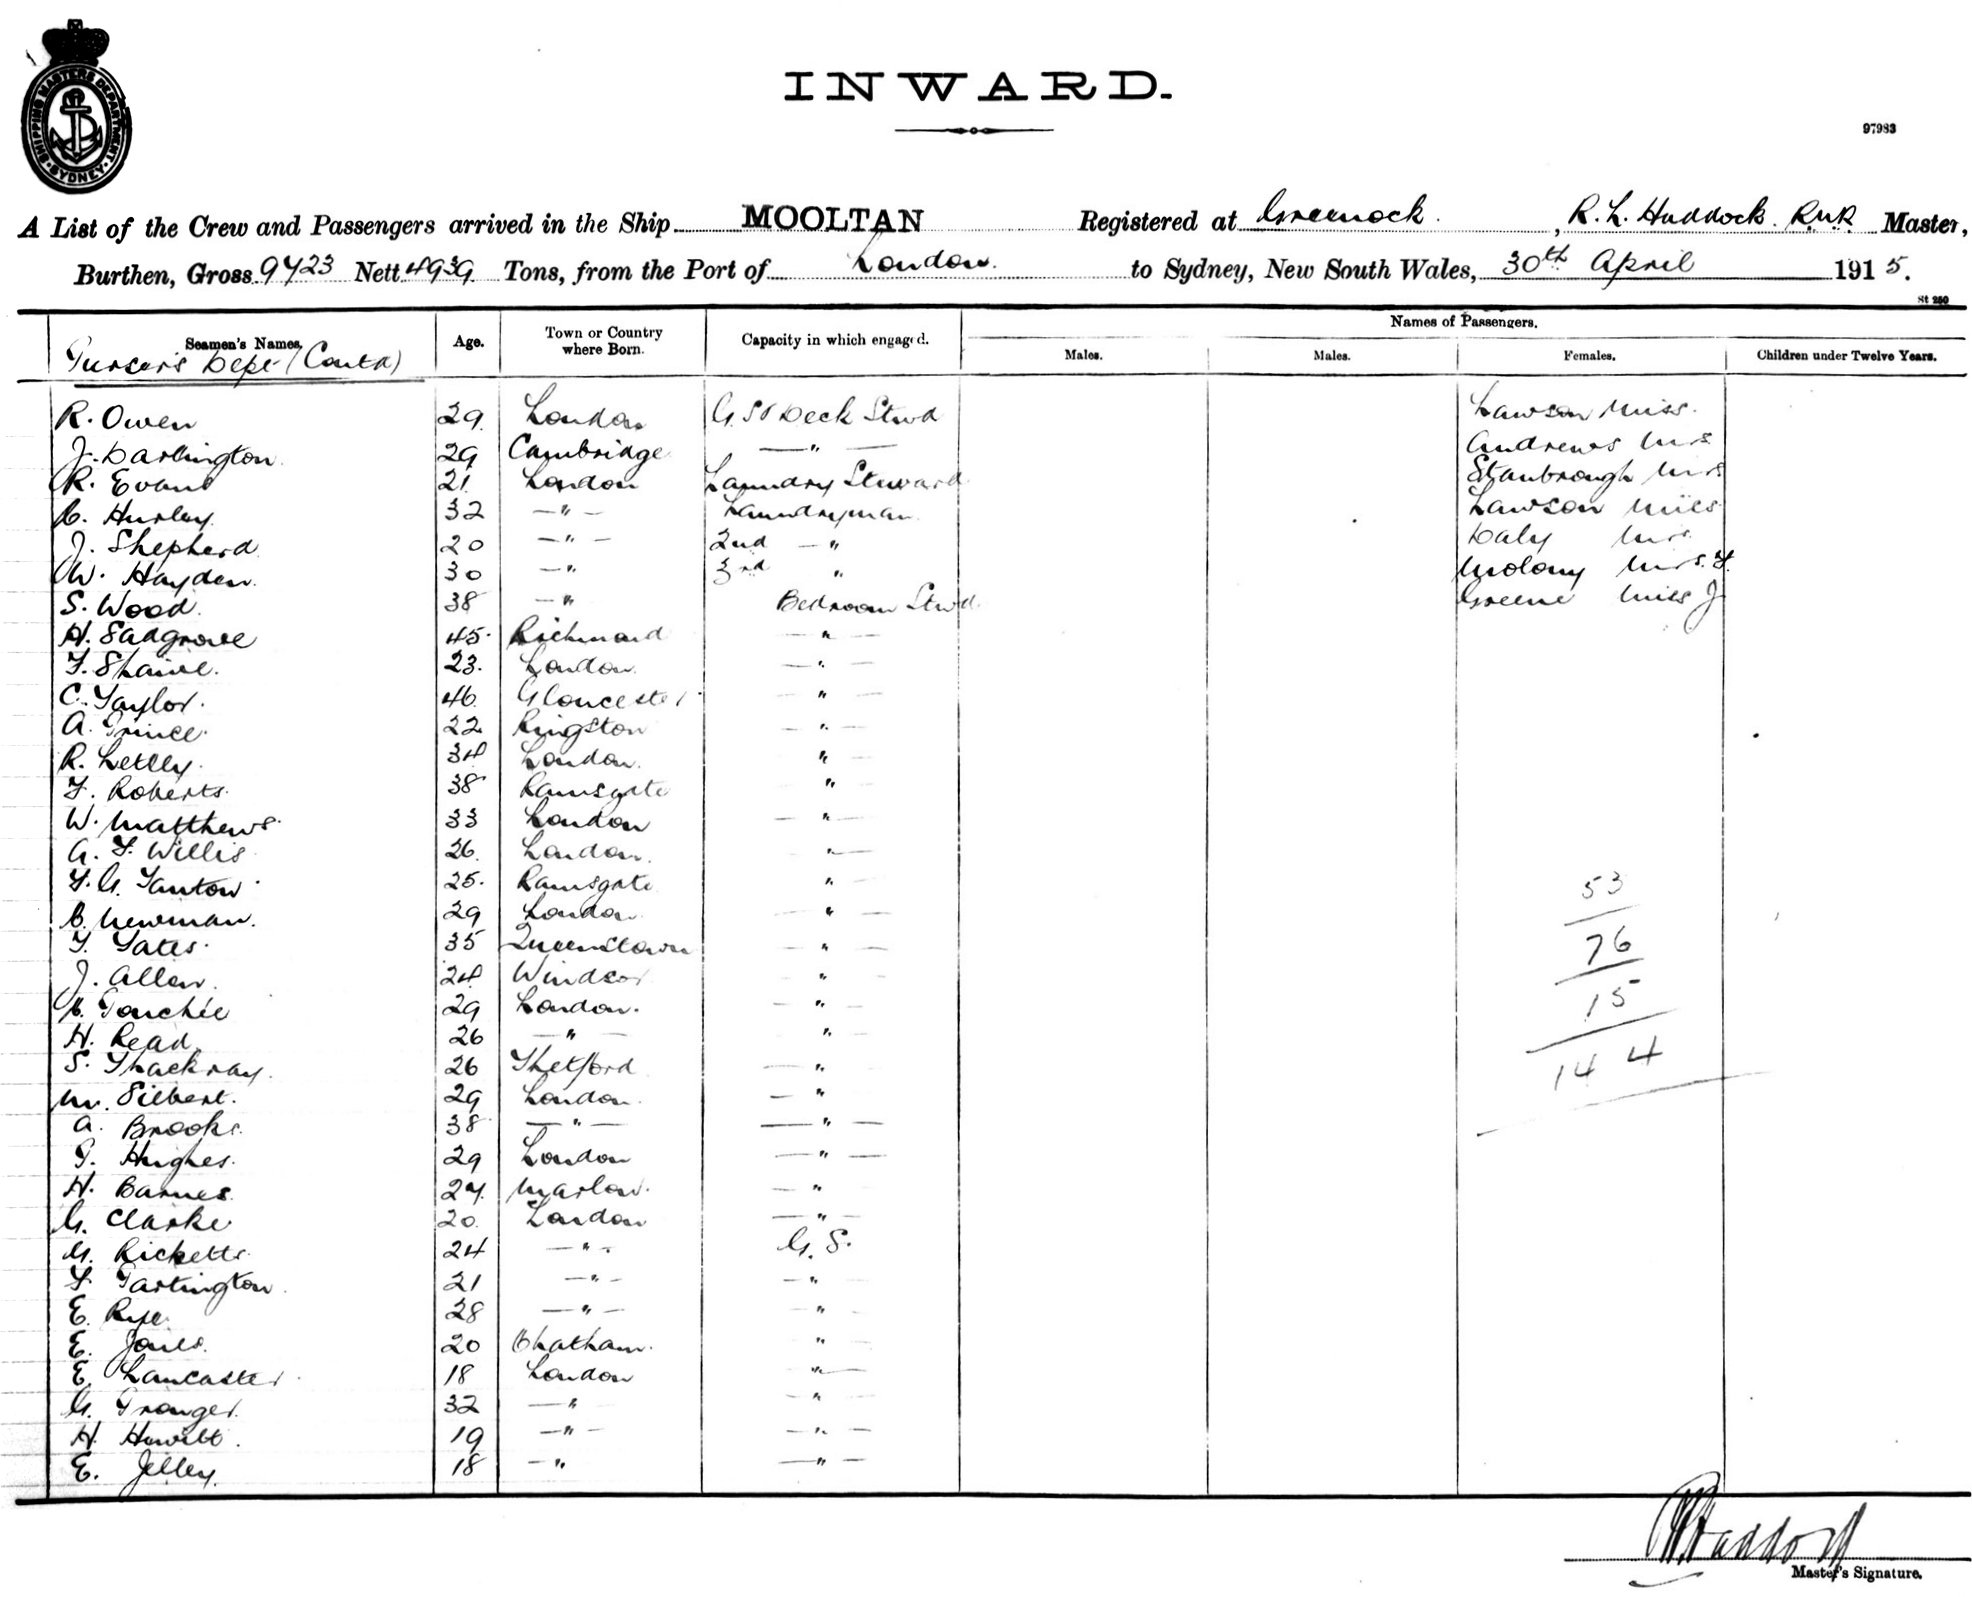 SHIPPING MASTERS DEPARTMENT SYDNEY
INWARD.
97983
A List of the Crew and Passengers arrived in the Ship MOOLTAN Registered at Greenock, R. L. Haddock. R.N.R. Master,
Burthen, Gross 9723 Nett 4939 Tons, from the Port of London. to Sydney, New South Wales, 30th April 1915.
St 250
Seamen's Names. Age. Town or Country where Born. Capacity in which engaged. Names of Passengers.
Males. Males. Females. Children under Twelve Years.
Purser's Dept (Contd)
R. Owen 29 London G.S. & Deck Stwd Lawson Miss.
J. Darlington 29 Cambridge —"— Andrews Mrs
R. Evans 21. London Laundry Steward Stanbrough Mrs
C. Hurley. 32 —"— Laundryman. Lawson Miss
J. Shepherd 20 —"— 2nd —" Daly Mrs.
W. Hayden. 30 —" 3rd " Molony Mrs. F.
S. Wood. 38 —" Bedroom Stwd. Greene Miss J
H. Sadgrove 45. Richmond —"—
F. Shawe. 23. London. —"—
C. Taylor. 46. Gloucester "—
A. Prince. 22 Kingston —"—
R. Letley. 34 London. "—
F. Roberts. 38 Ramsgate "
W. Matthews. 33 London —"—
G. F. Willis 26. London. "—
F. G. Tanton. 25. Ramsgate "—
C. Newman. 29 London —"— 53
T. Yates. 35 Queenstown —"— 76
J. Allen. 24 Windsor "
C. Touchée 29 London. —"— 15
H. Read. 26 —"— "
S. Thackray. 26 Thetford —" 144
M. Silbert. 29 London. —"
A. Brooks. 38 —"— —"—
P. Hughes. 29 London —"—
H. Barnes. 27. Marlow. —"
G. Clarke. 20. London —"—
G. Ricketts. 24 —"- G. S.
F. Partington. 21 —"- —"
E. Rye. 28 —"— "
E. Jones. 20 Chatham. "
E. Lancaster. 18 London "—
G. Granger. 32 —" "
H. Hewitt. 19 —"— —"—
E. Jelley. 18 —" —"—
R L Haddock
Master's Signature.